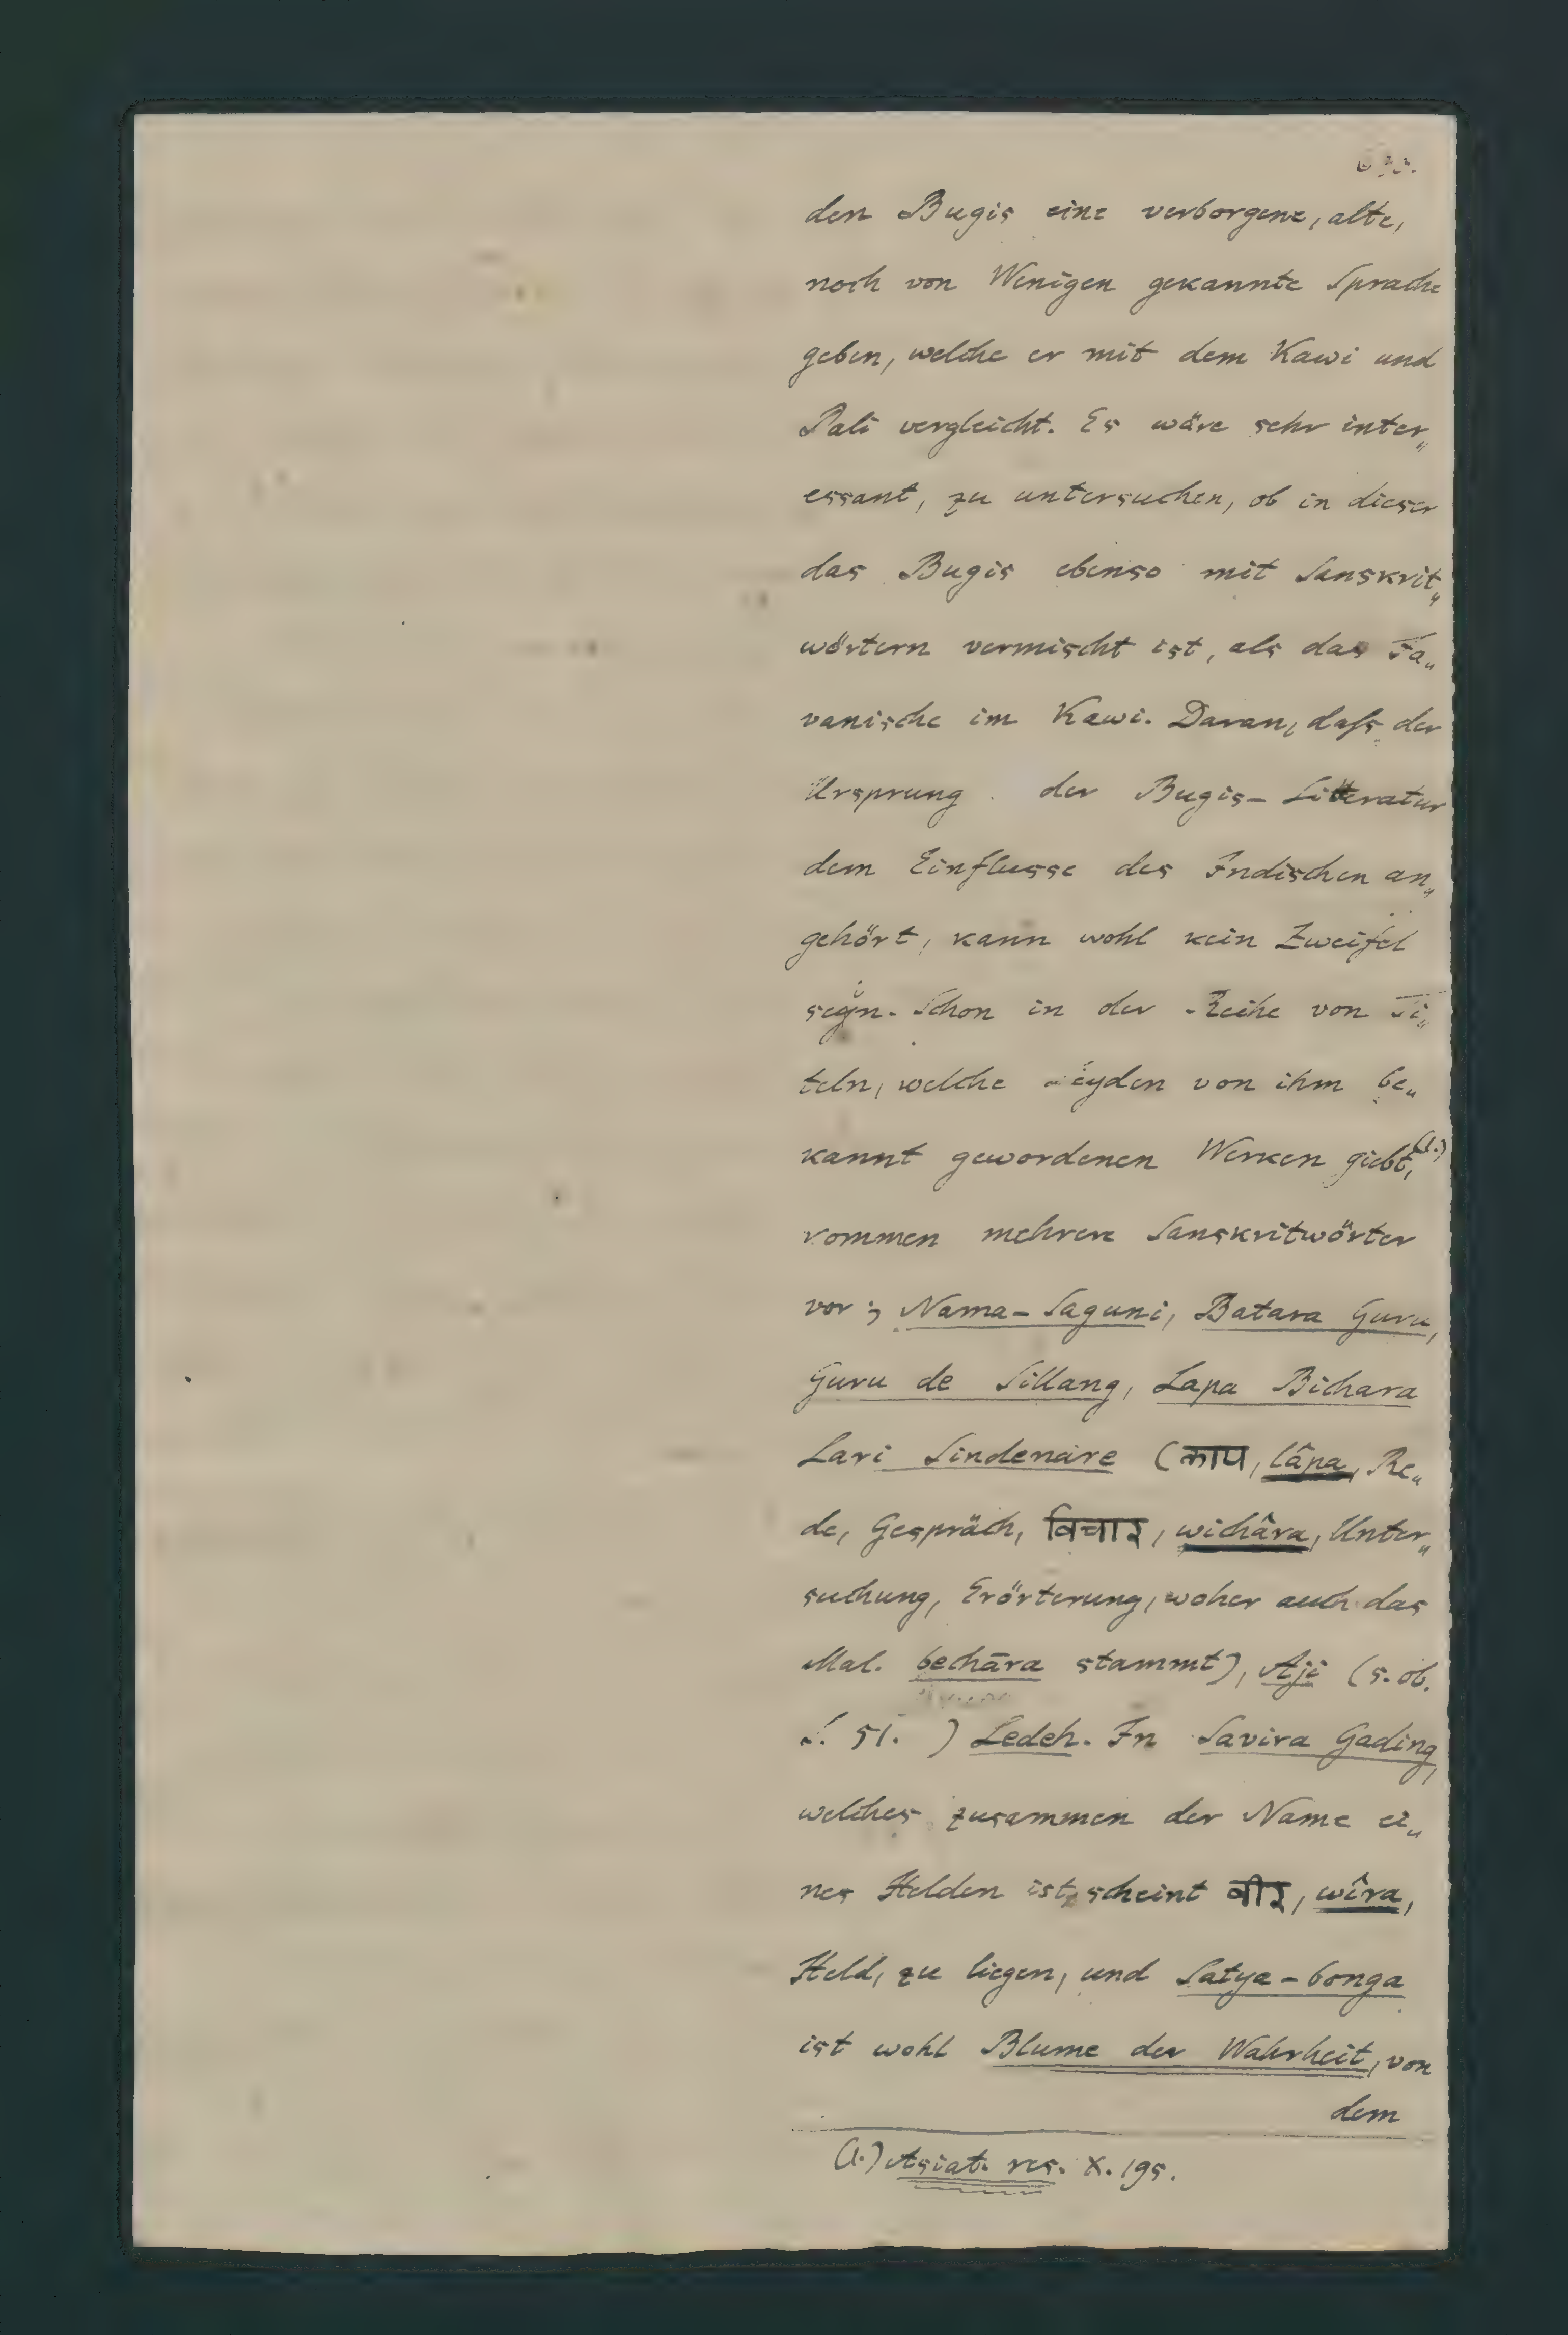 den Bugis eine verborgene, alte,
noch von Wenigen gekannte Sprache
geben, welche er mit dem Kawi und
Pali vergleicht. Es wäre sehr inter„
essant, zu untersuchen, ob in dieser
das Bugis ebenso mit Sanskrit„
wörtern vermischt ist, als das Ja„
vanische im Kawi. Daran, daſs der
Ursprung der Bugis-Litteratur
dem Einflusse des Indischen an„
gehört, kann wohl kein Zweifel
seyn. Schon in der Reihe von Ti„
teln, welche Leyden von ihm be„
kannt gewordenen Werken giebt,(1.)
kommen mehrere Sanskritwörter
vor; Nama-Saguni, Batara Guru,
Guru de Sillang, Lapa Bichara
Lari Sindenäre (लाप, lâpa, Re„
de, Gespräch, विचार, wichâra, Unter„
suchung, Erörterung, woher auch das
Mal. bechāra stammt), Aji (s. ob.
S. 51. ) Ledeh. In Savira Gading,
welches zusammen der Name ei„
nes Helden ist, scheint वीर, wîra,
Held, zu liegen, und Satya-bonga
ist wohl Blume der Wahrheit, von
dem
(1.) Asiat. res. X. 195.